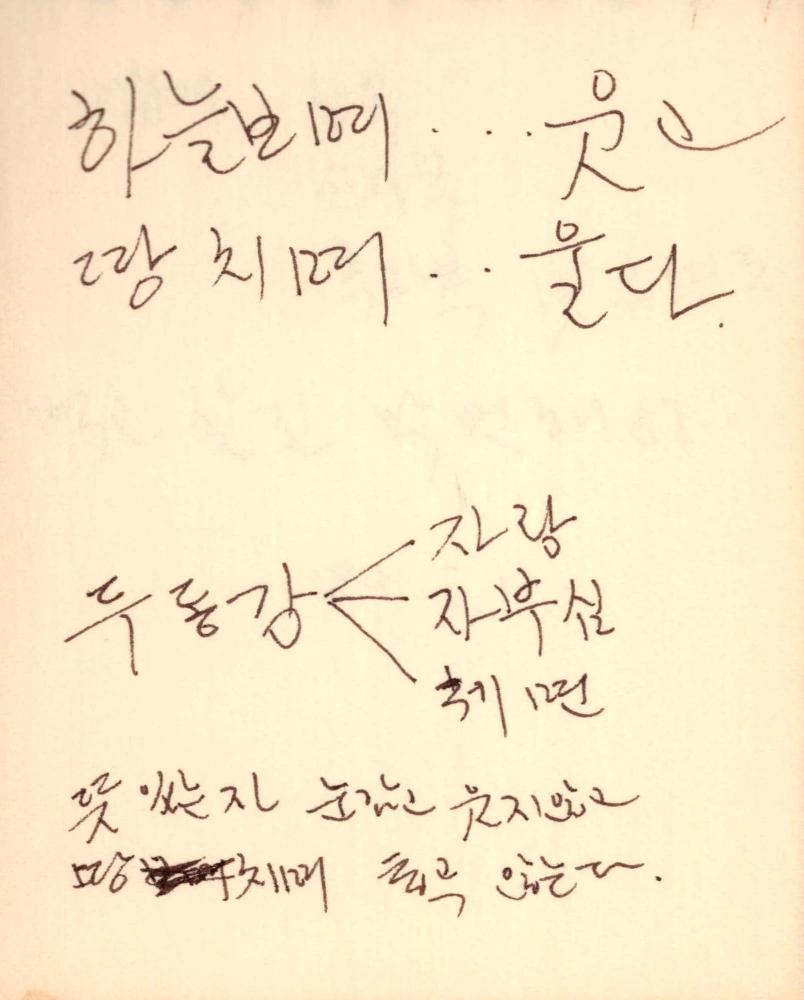 하늘보며 ..... 웃고
땅 치며 .... 울다.
두동강
자랑
자부심
체면
뜻 있는 자 눈감고 웃지않고
땅 치며 통곡 않는다.